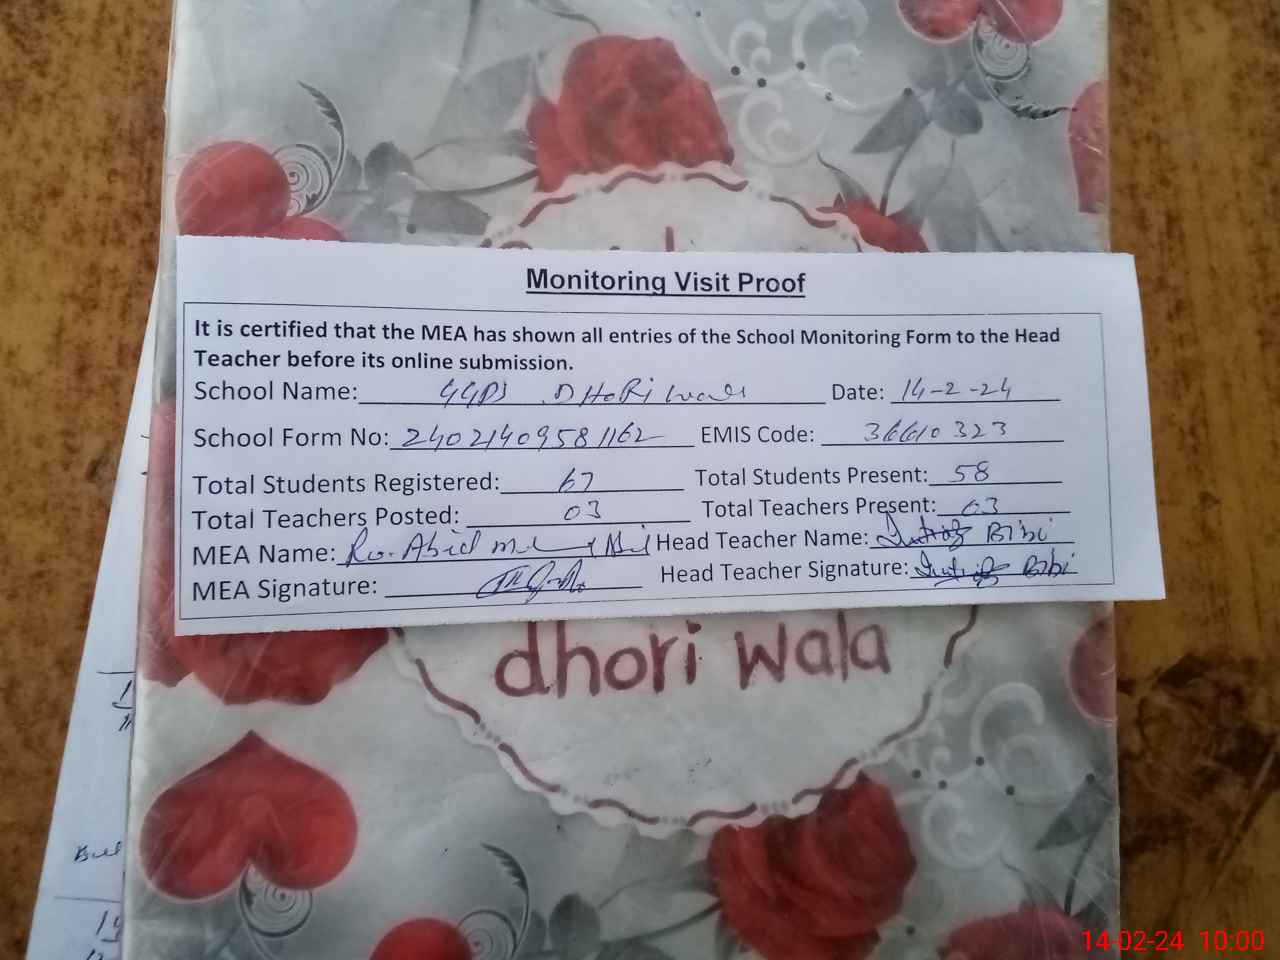 Monitoring Visit Proof
It is certified that the MEA has shown all entries of the School Monitoring Form to the Head
Teacher before its online submission.
School Name: GGPS DHORi wala Date: 14-2-24
School Form No: 24021409581162 EMIS Code: 36610323
Total Students Registered: 67 Total Students Present: 58
Total Teachers Posted: 03 Total Teachers Present: 03
MEA Name: Abid Head Teacher Name: Bibi
MEA Signature: Head Teacher Signature: Bibi
dhori wala
14-02-24 10:00